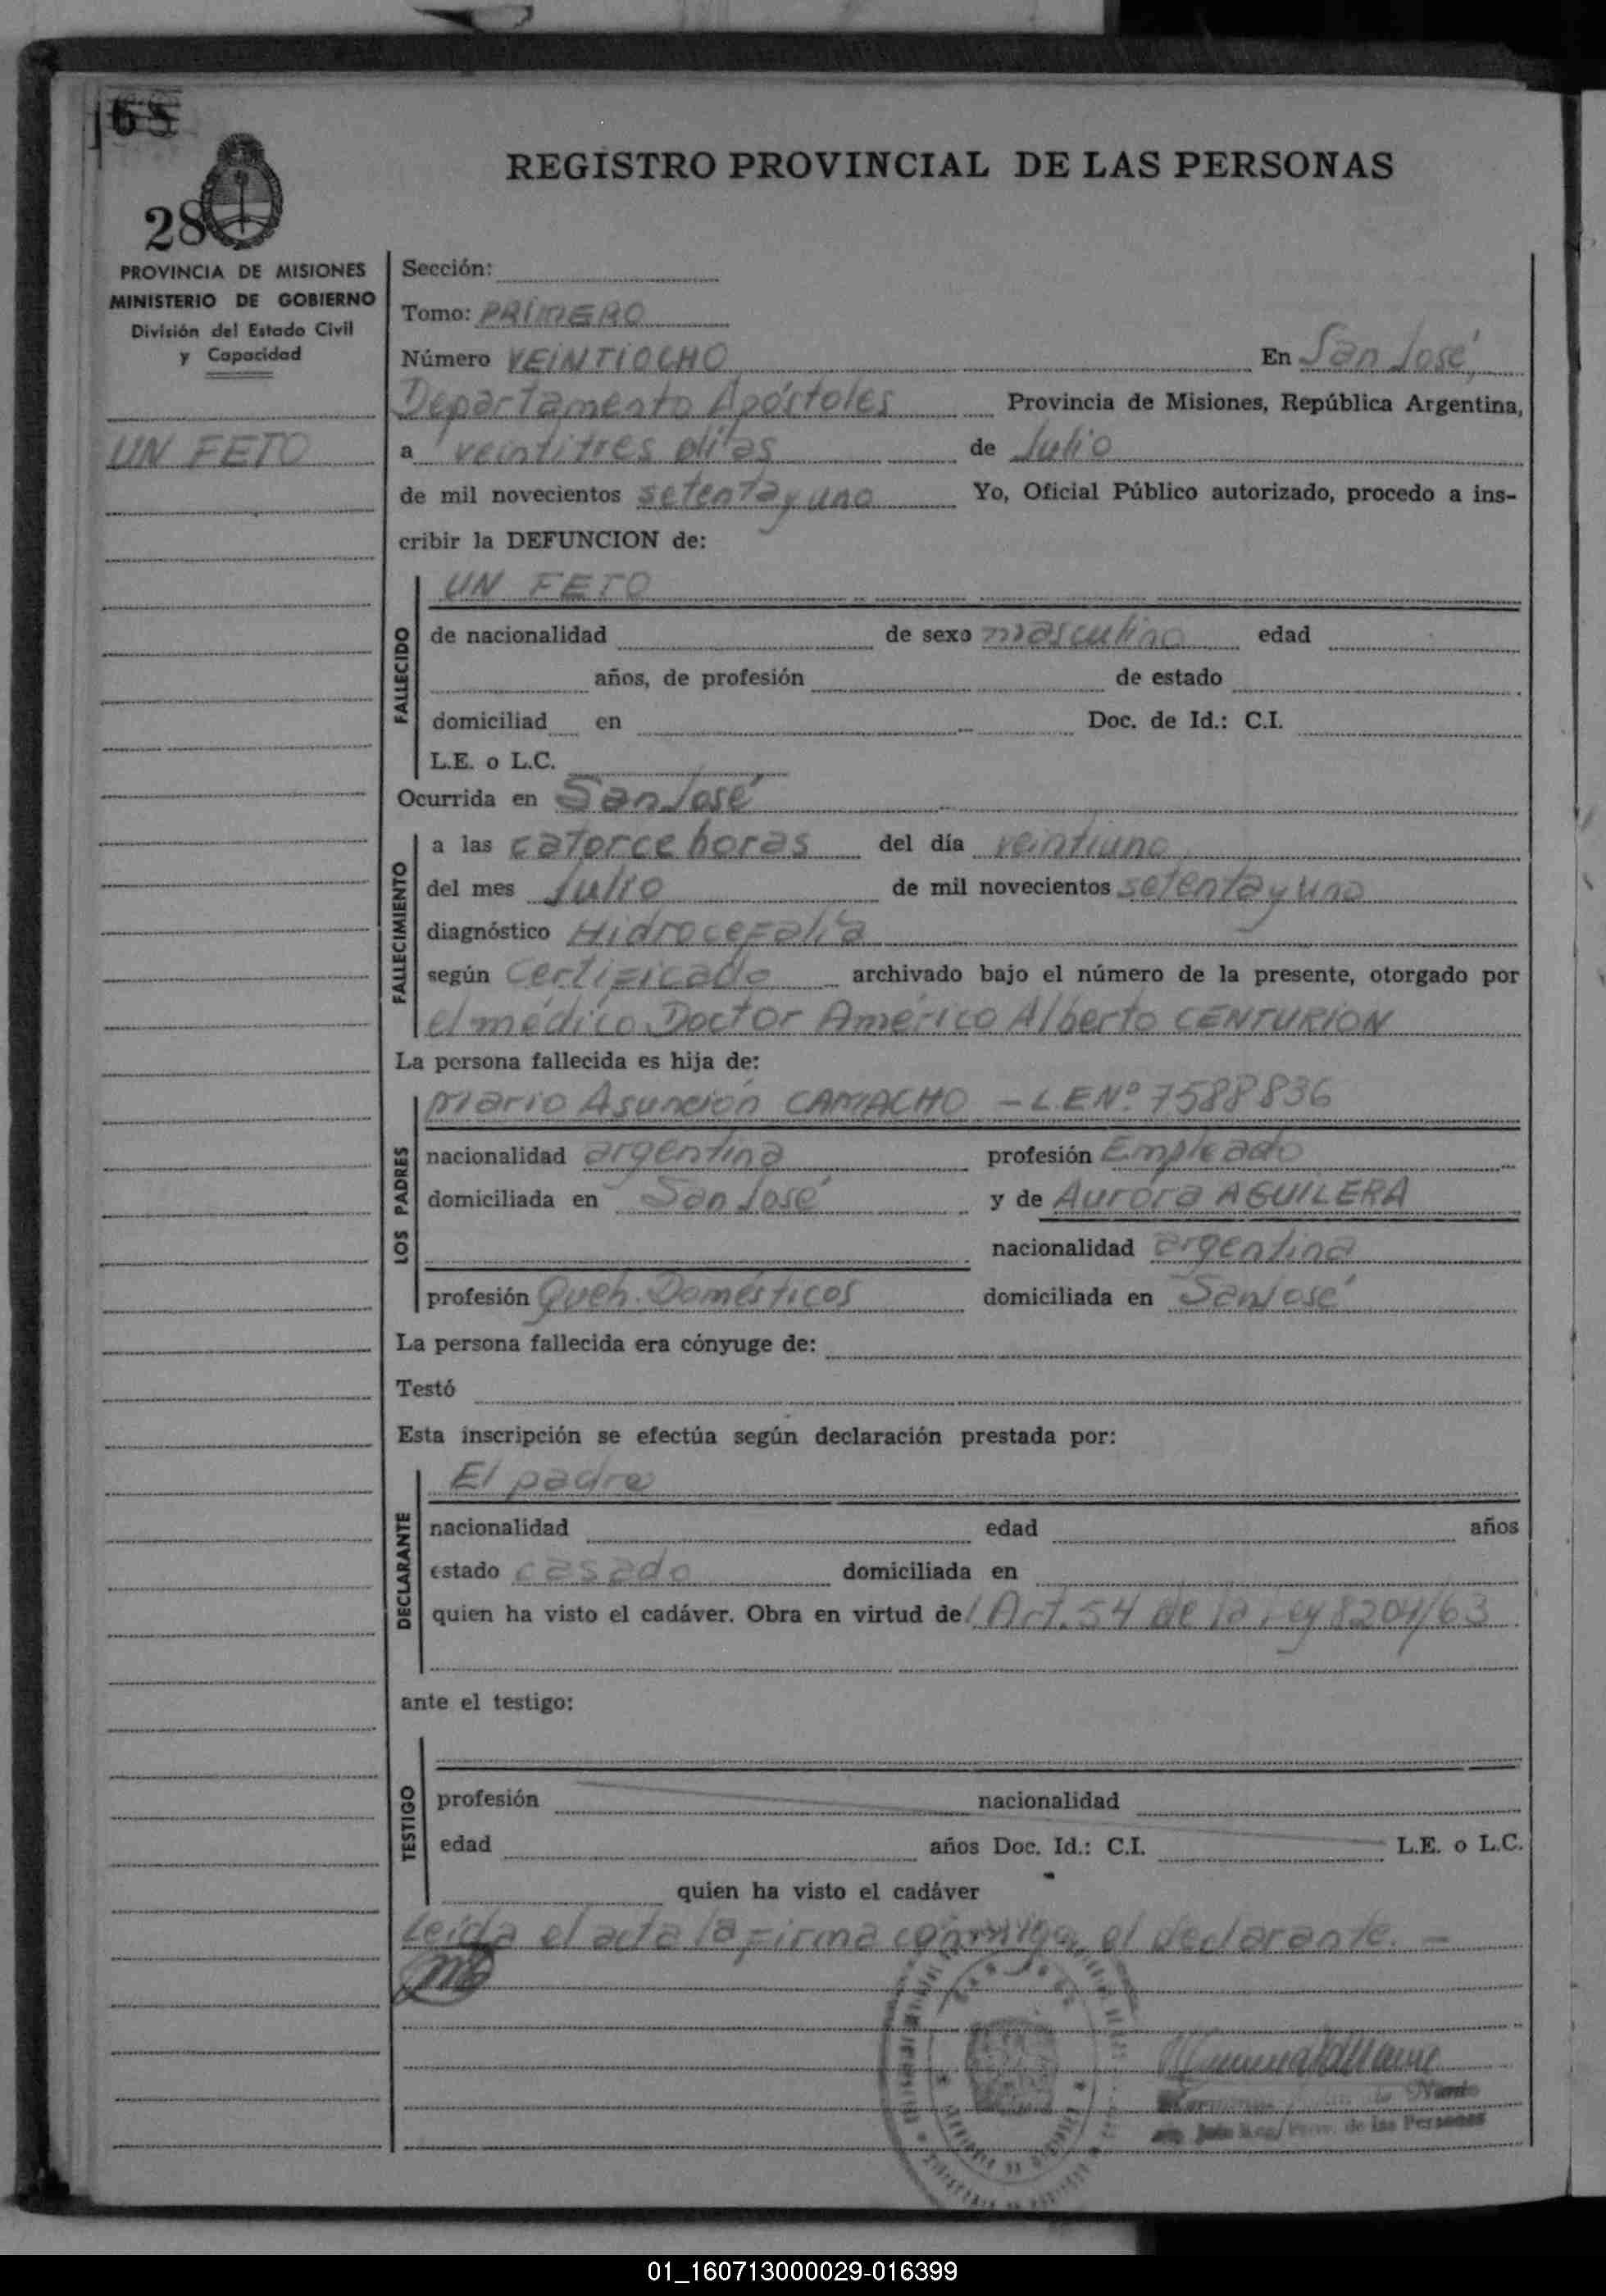 168
28
REGISTRO PROVINCIAL DE LAS PERSONAS
PROVINCIA DE MISIONES
MINISTERIO DE GOBIERNO
División del Estado Civil
y Capacidad
UN FETO
Sección:
Tomo: PRIMERO
Número VEINTIOCHO En San José,
Departamento Apóstoles Provincia de Misiones, República Argentina,
a veintitres días de Julio
de mil novecientos setenta y uno Yo, Oficial Público autorizado, procedo a ins-
cribir la DEFUNCION de:
FALLECIDO
UN FETO
de nacionalidad de sexo masculino edad
años, de profesión de estado
domiciliad en Doc. de Id.: C.I.
L.E. o L.C.
Ocurrida en San José
FALLECIMIENTO
a las catorce horas del día veintiuno
del mes Julio de mil novecientos setenta y uno
diagnóstico Hidrocefalía
según Certificado archivado bajo el número de la presente, otorgado por
el médico Doctor Américo Alberto CENTURION
La persona fallecida es hija de:
LOS PADRES
Mario Asunción CAMACHO - L.E Nº 7588836
nacionalidad argentina profesión Empleado
domiciliada en San José y de Aurora AGUILERA
nacionalidad argentina
profesión Queh. Domésticos domiciliada en San José
La persona fallecida era cónyuge de:
Testó
Esta inscripción se efectúa según declaración prestada por:
DECLARANTE
El padre
nacionalidad edad años
estado casado domiciliada en
quien ha visto el cadáver. Obra en virtud del Art. 54 de la Ley 8204/63
ante el testigo:
TESTIGO
profesión nacionalidad
edad años Doc. Id.: C.I. L.E. o L.C.
quien ha visto el cadáver
Leída el acta la firma conmigo, el declarante. -
de las Personas
01_160713000029-016399